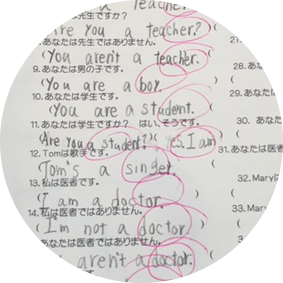 teacher.
先生ですか?
Are you a teacher?)
あなたは先生ではありません。
(You aren't a teacher.
9.あなたは男の子です。
(You are a boy.
10.あなたは学生です。
(You are a student. )
11.あなたは学生ですか? はい、そうです。
(Are you a student?) (Yes, I am)
12.Tomは歌手です。
Tom's a singer.
13.私は医者です。
(I am a doctor. )
14.私は医者ではありません。
(I'm not a doctor. )
あなたは医者ではありません。
aren't a doctor. )
27.
28.あな
29.あな
30. あな
31.あなたは医者
32.Maryは
33.Mar